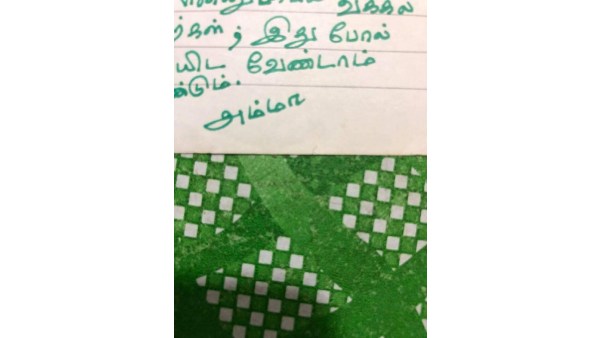 ர்கள், இது போல்
யிட வேண்டாம்
ண்டும்.
அம்மா